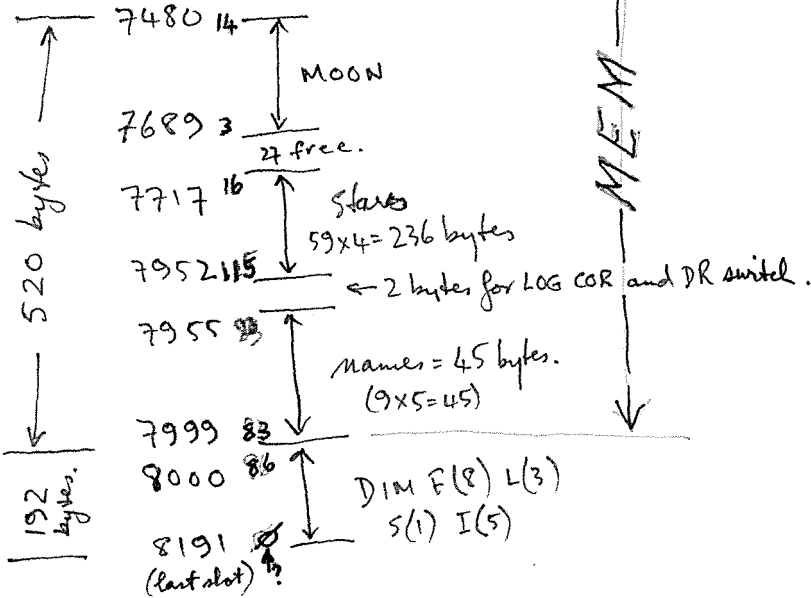 7480 14
MOON
7689 3
27 free.
7717 16
Stars
59x4=236 bytes
7952 115
← 2 bytes for LOG COR and DR switch.
7955
names = 45 bytes.
(9x5=45)
7999 83
8000 86
DIM F(8) L(3)
S(1) I(5)
8191 Ø
(last slot) ?
520 bytes
192 bytes.
MEM